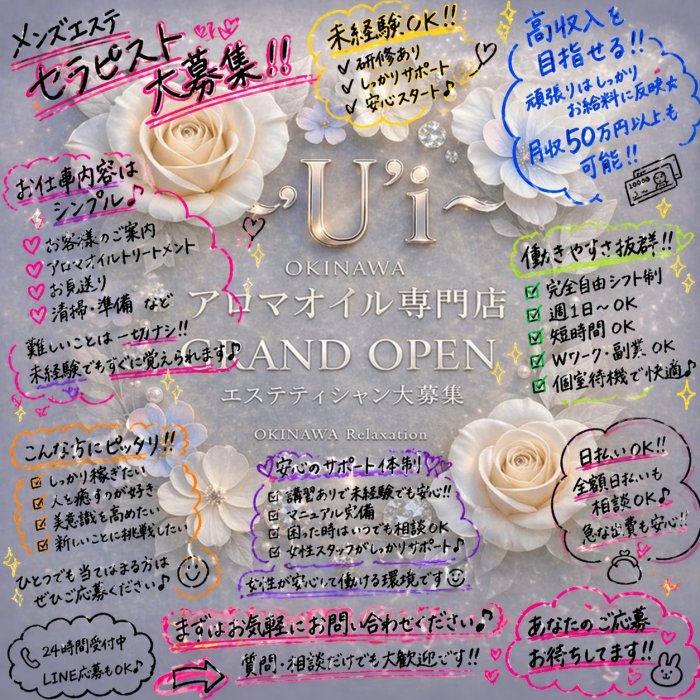 メンズエステ
セラピスト
大募集!!
未経験OK!!
✓研修あり
✓しっかりサポート
✓安心スタート♪
高収入を
目指せる!!
頑張りはしっかり
お給料に反映☆
月収50万円以上も
可能!!
10000
お仕事内容は
シンプル♪
♡お客様のご案内
♡アロマオイルトリートメント
♡お見送り
♡清掃・準備 など
難しいことは一切ナシ!!
未経験でもすぐに覚えられます♪
~'U'i~
OKINAWA
アロマオイル専門店
GRAND OPEN
エステティシャン大募集
OKINAWA Relaxation
働きやすさ抜群!!
☑完全自由シフト制
☑週1日~OK
☑短時間OK
☑Wワーク・副業OK
☑個室待機で快適♪
こんな方にピッタリ!!
☑しっかり稼ぎたい
☑人を癒すのが好き
☑美意識を高めたい
☑新しいことに挑戦したい
ひとつでも当てはまる方は
ぜひご応募ください♪
♡安心のサポート体制♡
☑講習ありで未経験でも安心!!
☑マニュアル完備
☑困った時はいつでも相談OK
☑女性スタッフがしっかりサポート♪
女性が安心して働ける環境です
日払いOK!!
全額日払いも
相談OK♪
急な出費も安心!!
24時間受付中
LINE応募もOK♪
まずはお気軽にお問い合わせください♪
質問・相談だけでも大歓迎です!!
あなたのご応募
お待ちしてます!!